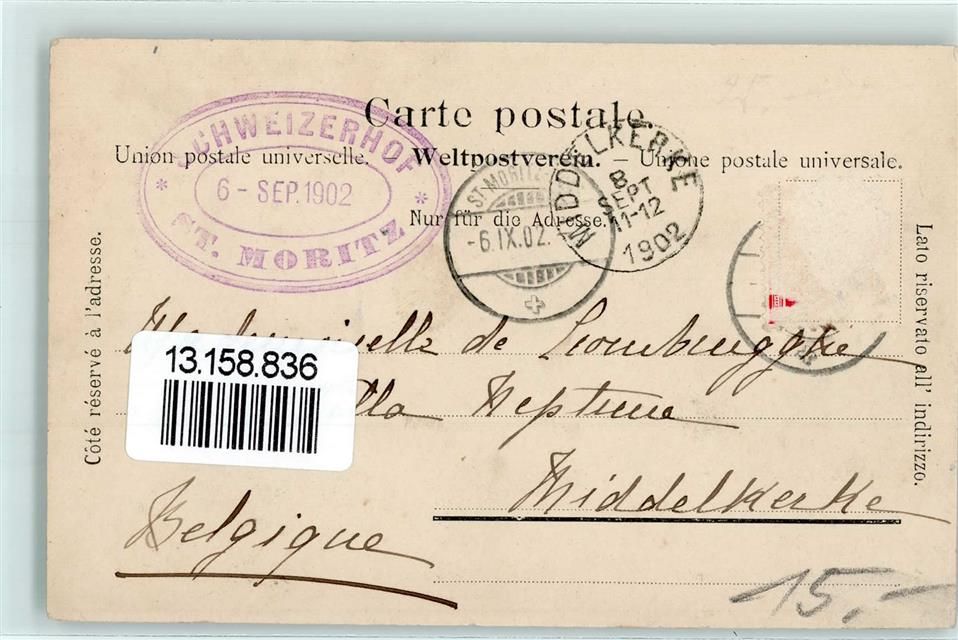 Carte postale.
Union postale universelle. – Weltpostverein. – Unione postale universale.
Nur für die Adresse.
SCHWEIZERHOF
6 - SEP. 1902
* ST. MORITZ *
ST. MORITZ
-6.IX.02.-
MIDDELKERKE
8
SEPT
11-12
1902
Côté réservé à l'adresse.
Lato riservato all' indirizzo.
13.158.836
de
Neptune
Middelkerke
Belgique
15.-